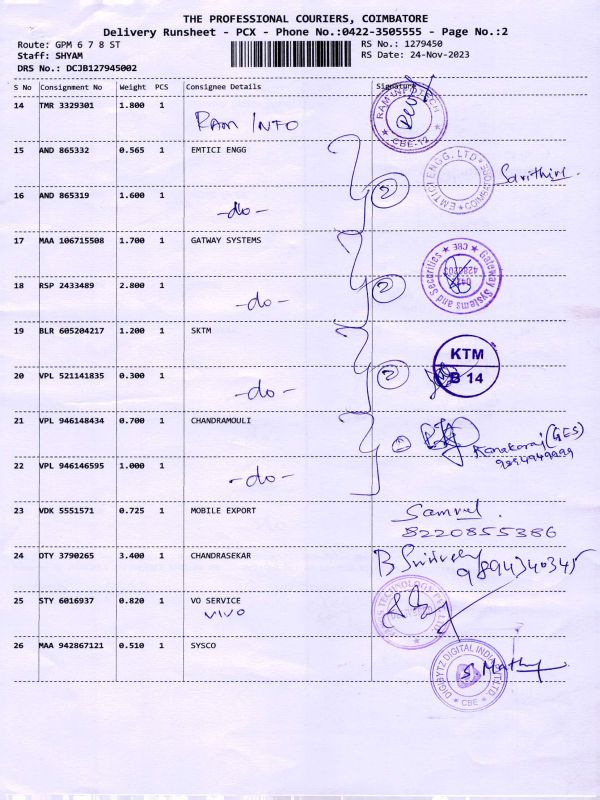 THE PROFESSIONAL COURIERS, COIMBATORE
Delivery Runsheet - PCX - Phone No.:0422-3505555 - Page No.:2
Route: GPM 6 7 8 ST
RS No.: 1279450
Staff: SHYAM
RS Date: 24-Nov-2023
DRS No.: DCJB127945002
S No Consignment No Weight PCS Consignee Details Signature
14 TMR 3329301 1.800 1
RAM INFO
RAM INFOTECH
CBE-12
15 AND 865332 0.565 1 EMTICI ENGG
EMTICI ENGG. LTD
COIMBATORE
16 AND 865319 1.600 1
-do-
2
17 MAA 106715508 1.700 1 GATWAY SYSTEMS
Gateway Systems and Securities
CBE
18 RSP 2433489 2.800 1
-do-
2
19 BLR 605204217 1.200 1 SKTM
KTM
B 14
20 VPL 521141835 0.300 1
-do-
2
21 VPL 946148434 0.700 1 CHANDRAMOULI
Kanakaraj (GES)
22 VPL 946146595 1.000 1
-do-
23 VDK 5551571 0.725 1 MOBILE EXPORT
Samuel
8220855386
24 OTY 3790265 3.400 1 CHANDRASEKAR
9894340345
25 STY 6016937 0.820 1 VO SERVICE
VIVO
TECHNOLOGY
26 MAA 942867121 0.510 1 SYSCO
DIGIBYTZ DIGITAL INDIA
CBE
S. Mathy